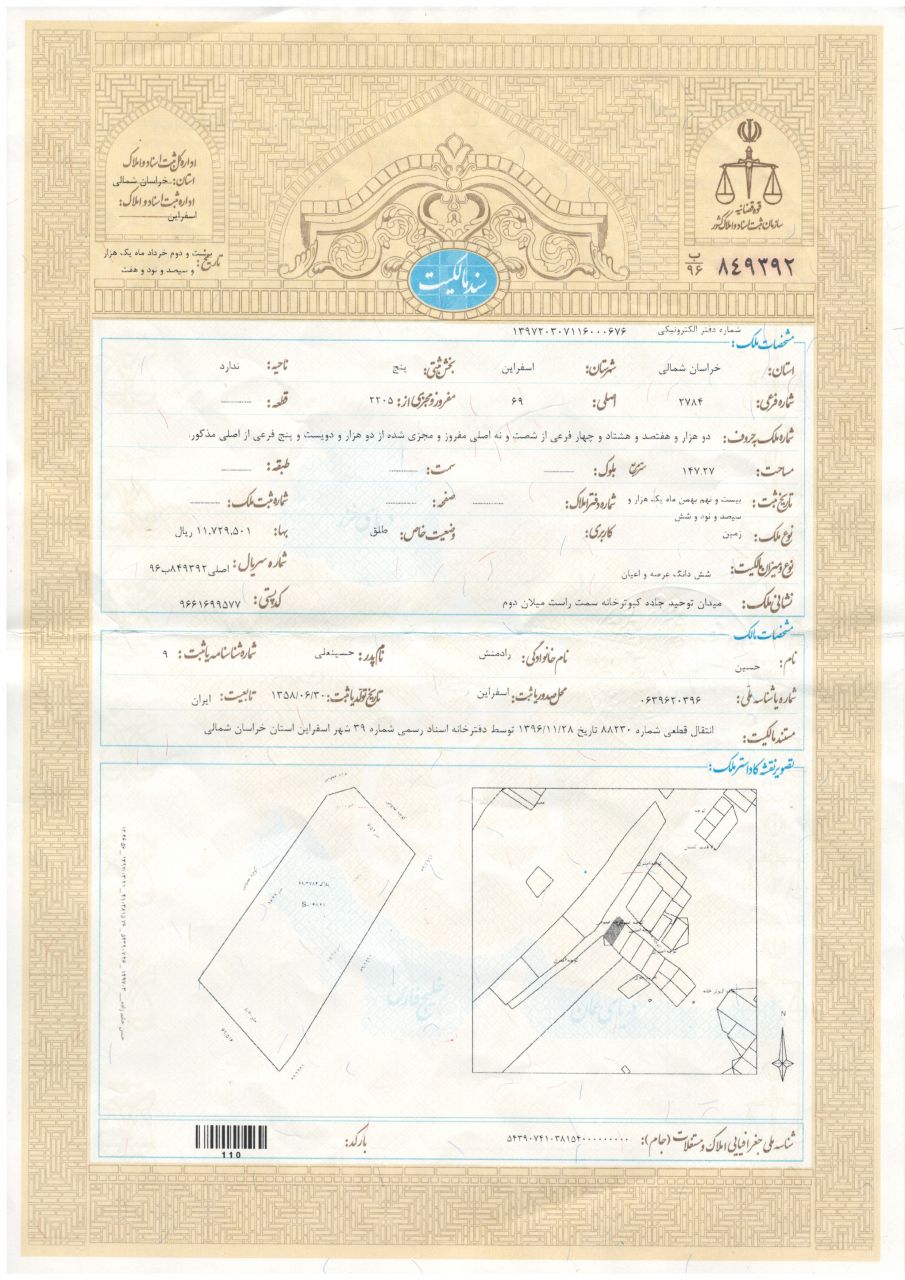 قوه قضائیه
سازمان ثبت اسناد و املاک کشور
ب ۹۶ ۸۴۹۳۹۲
اداره کل ثبت اسناد و املاک
استان: خراسان شمالی
اداره ثبت اسناد و املاک:
اسفراین
تاریخ: بیست و دوم خرداد ماه یک هزار
و سیصد و نود و هفت
سند مالکیت
شماره دفتر الکترونیکی ۱۳۹۷۲۰۳۰۷۱۱۶۰۰۰۶۷۶
مشخصات ملک:
استان: خراسان شمالی شهرستان: اسفراین بخش ثبتی: پنج ناحیه: ندارد
شماره فرعی: ۲۷۸۴ اصلی: ۶۹ مفروز و مجزی از: ۲۲۰۵ قطعه: ----------
شماره ملک بحروف: دو هزار و هفتصد و هشتاد و چهار فرعی از شصت و نه اصلی مفروز و مجزی شده از دو هزار و دویست و پنج فرعی از اصلی مذکور.
مساحت: ۱۴۷.۲۷ مترمربع بلوک: ---------- سمت: ---------- طبقه: ----------
تاریخ ثبت: بیست و نهم بهمن ماه یک هزار و شماره دفتر املاک: ---------- صفحه: ---------- شماره ثبت ملک: ----------
سیصد و نود و شش
نوع ملک: زمین کاربری: وضعیت خاص: طلق بها: ۱۱,۷۲۹,۵۰۱ ریال
نوع و میزان مالکیت: شش دانگ عرصه و اعیان شماره سریال: اصلی۸۴۹۳۹۲ب۹۶
نشانی ملک: میدان توحید جاده کبوترخانه سمت راست میلان دوم کد پستی: ۹۶۶۱۶۹۹۵۷۷
مشخصات مالک
نام: حسین نام خانوادگی: رادمنش نام پدر: حسینعلی شماره شناسنامه یا ثبت: ۹
شماره یا شناسه ملی: ۰۶۳۹۶۲۰۳۹۶ محل صدور یا ثبت: اسفراین تاریخ تولد یا ثبت: ۱۳۵۸/۰۶/۳۰ تابعیت: ایران
مستند مالکیت: انتقال قطعی شماره ۸۸۲۳۰ تاریخ ۱۳۹۶/۱۱/۲۸ توسط دفترخانه اسناد رسمی شماره ۳۹ شهر اسفراین استان خراسان شمالی
تصویر نقشه کاداستر ملک:
N
خلیج فارس
دریای عمان
دریای خزر
شناسه ملی جغرافیایی املاک و مستغلات (جام): ۵۴۳۹۰۷۴۱۰۳۸۱۵۴۰۰۰۰۰۰۰۰۰ بارکد:
110